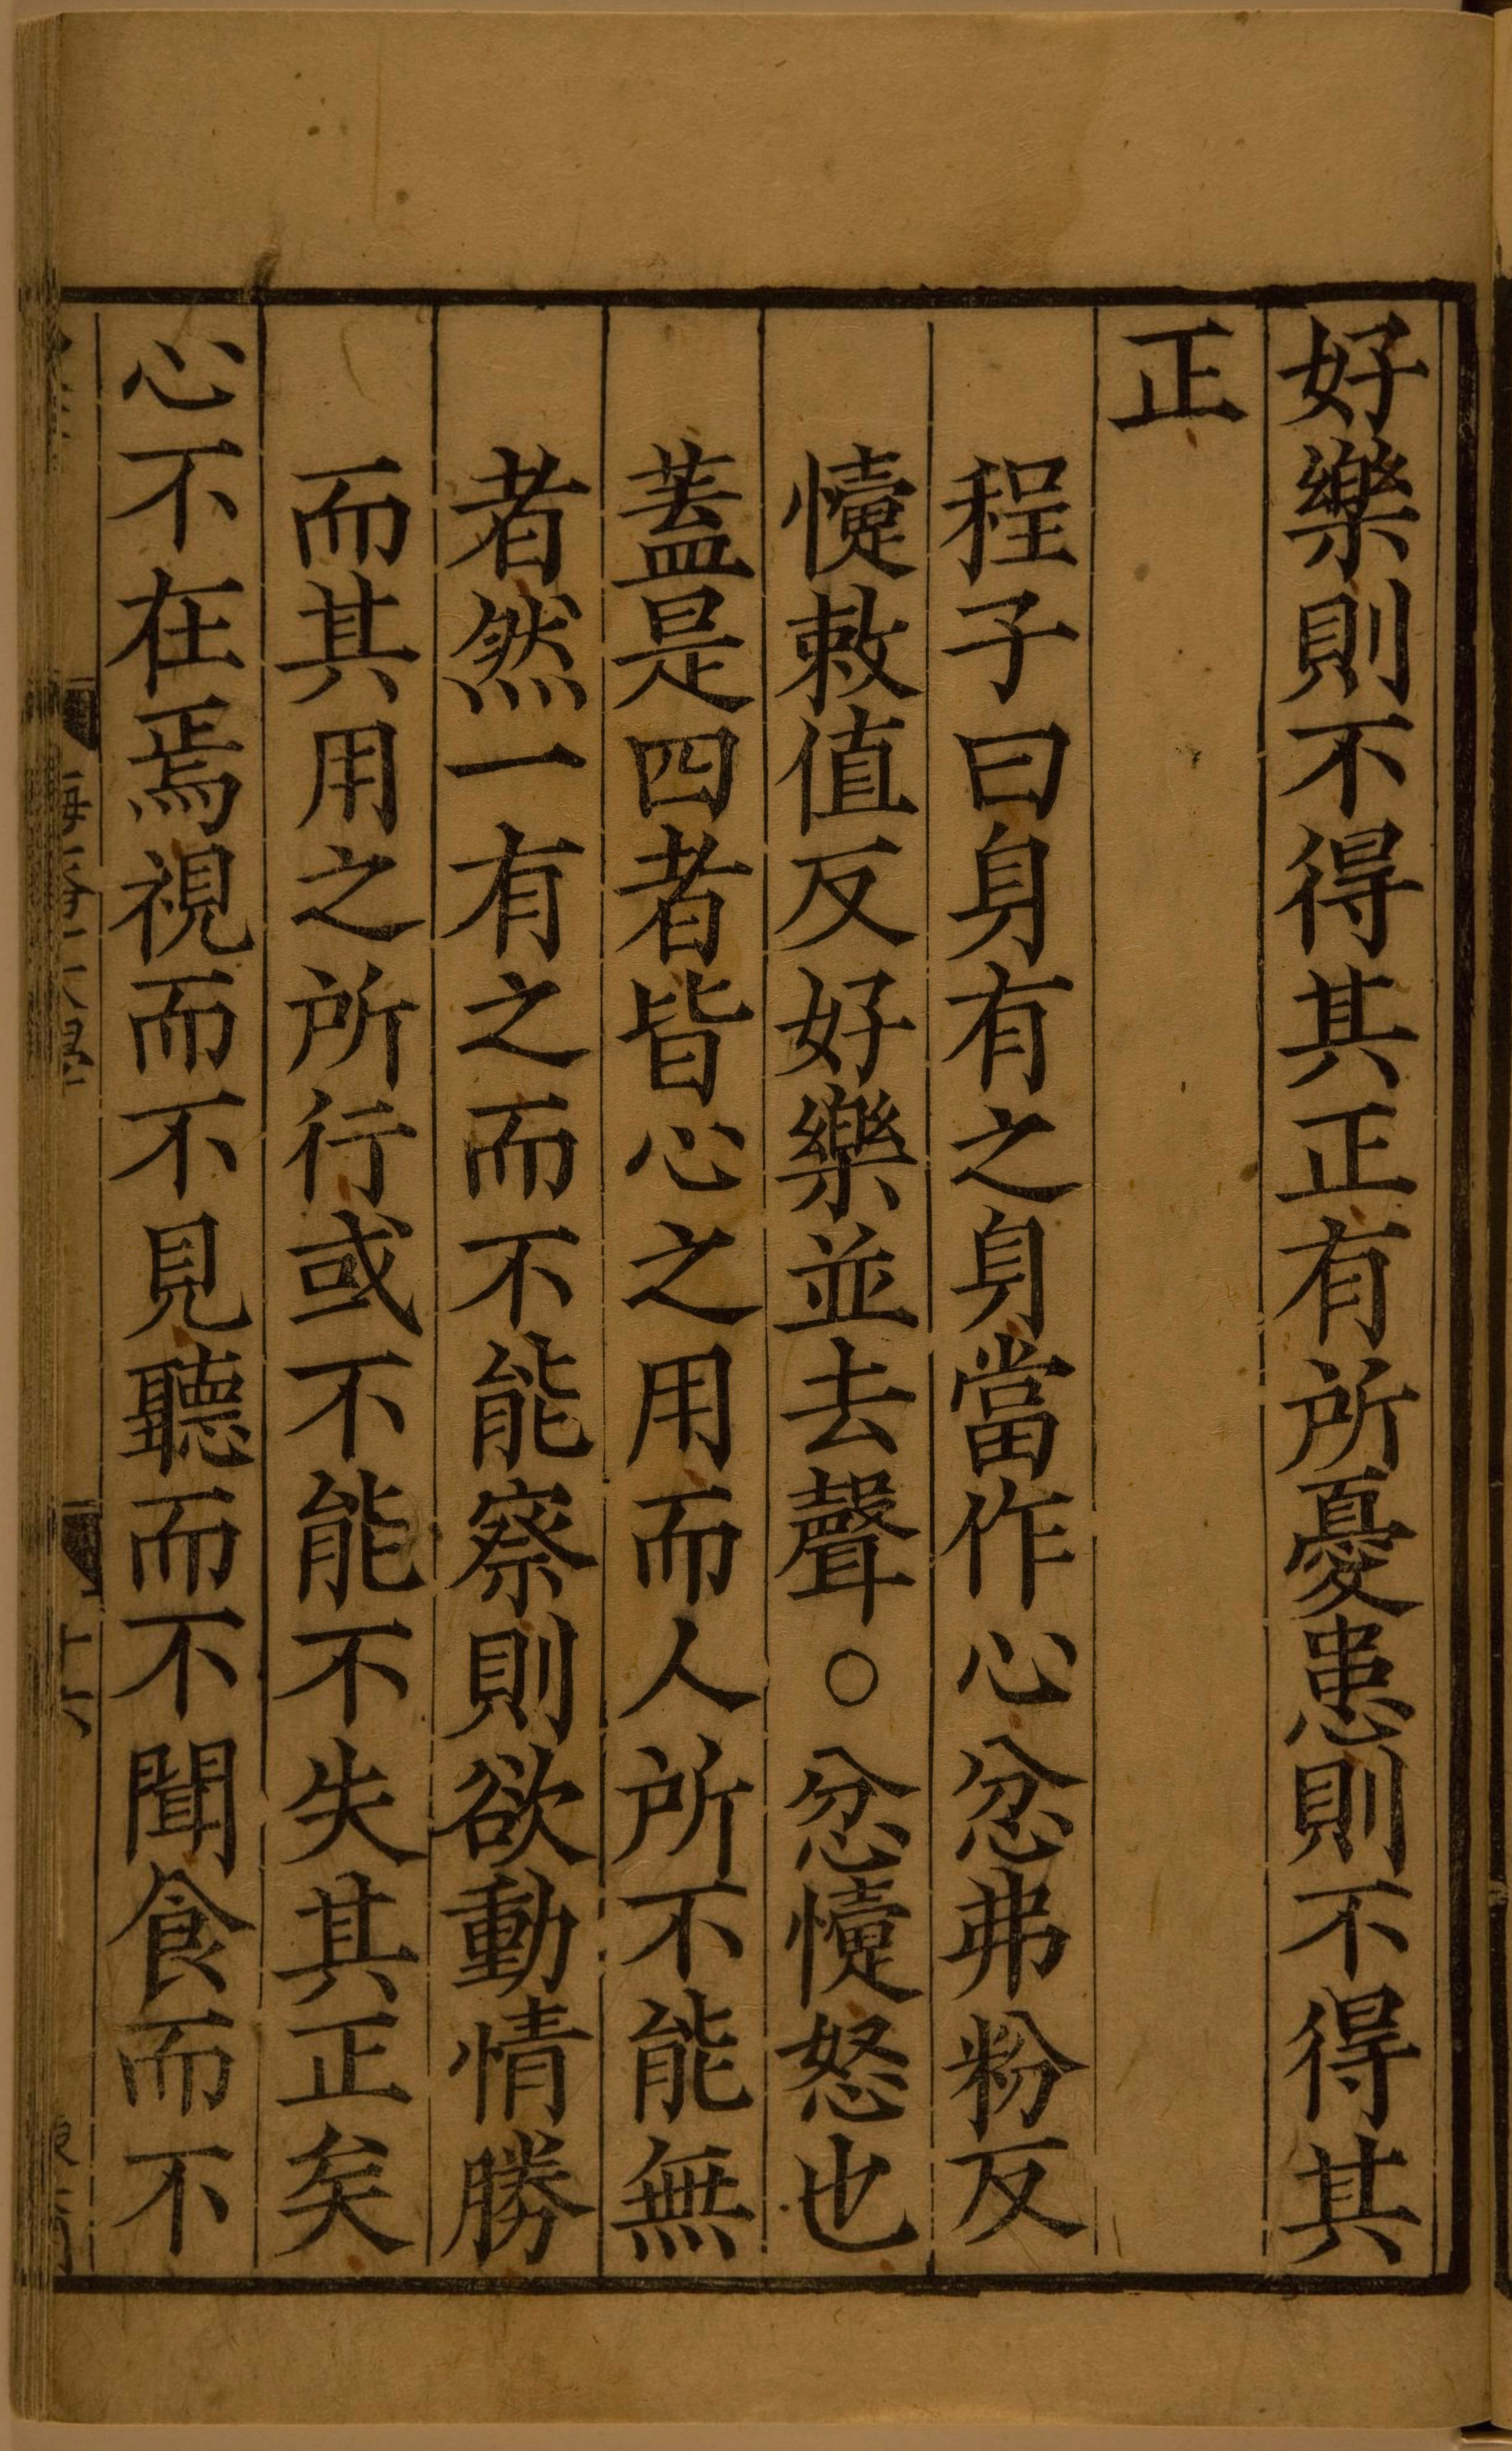 好樂則不得其正有所憂患則不得其
正
程子曰身有之身當作心忿弗粉反
懥敕值反好樂並去聲○忿懥怒也
蓋是四者皆心之用而人所不能無
者然一有之而不能察則欲動情勝
而其用之所行或不能不失其正矣
心不在焉視而不見聽而不聞食而不